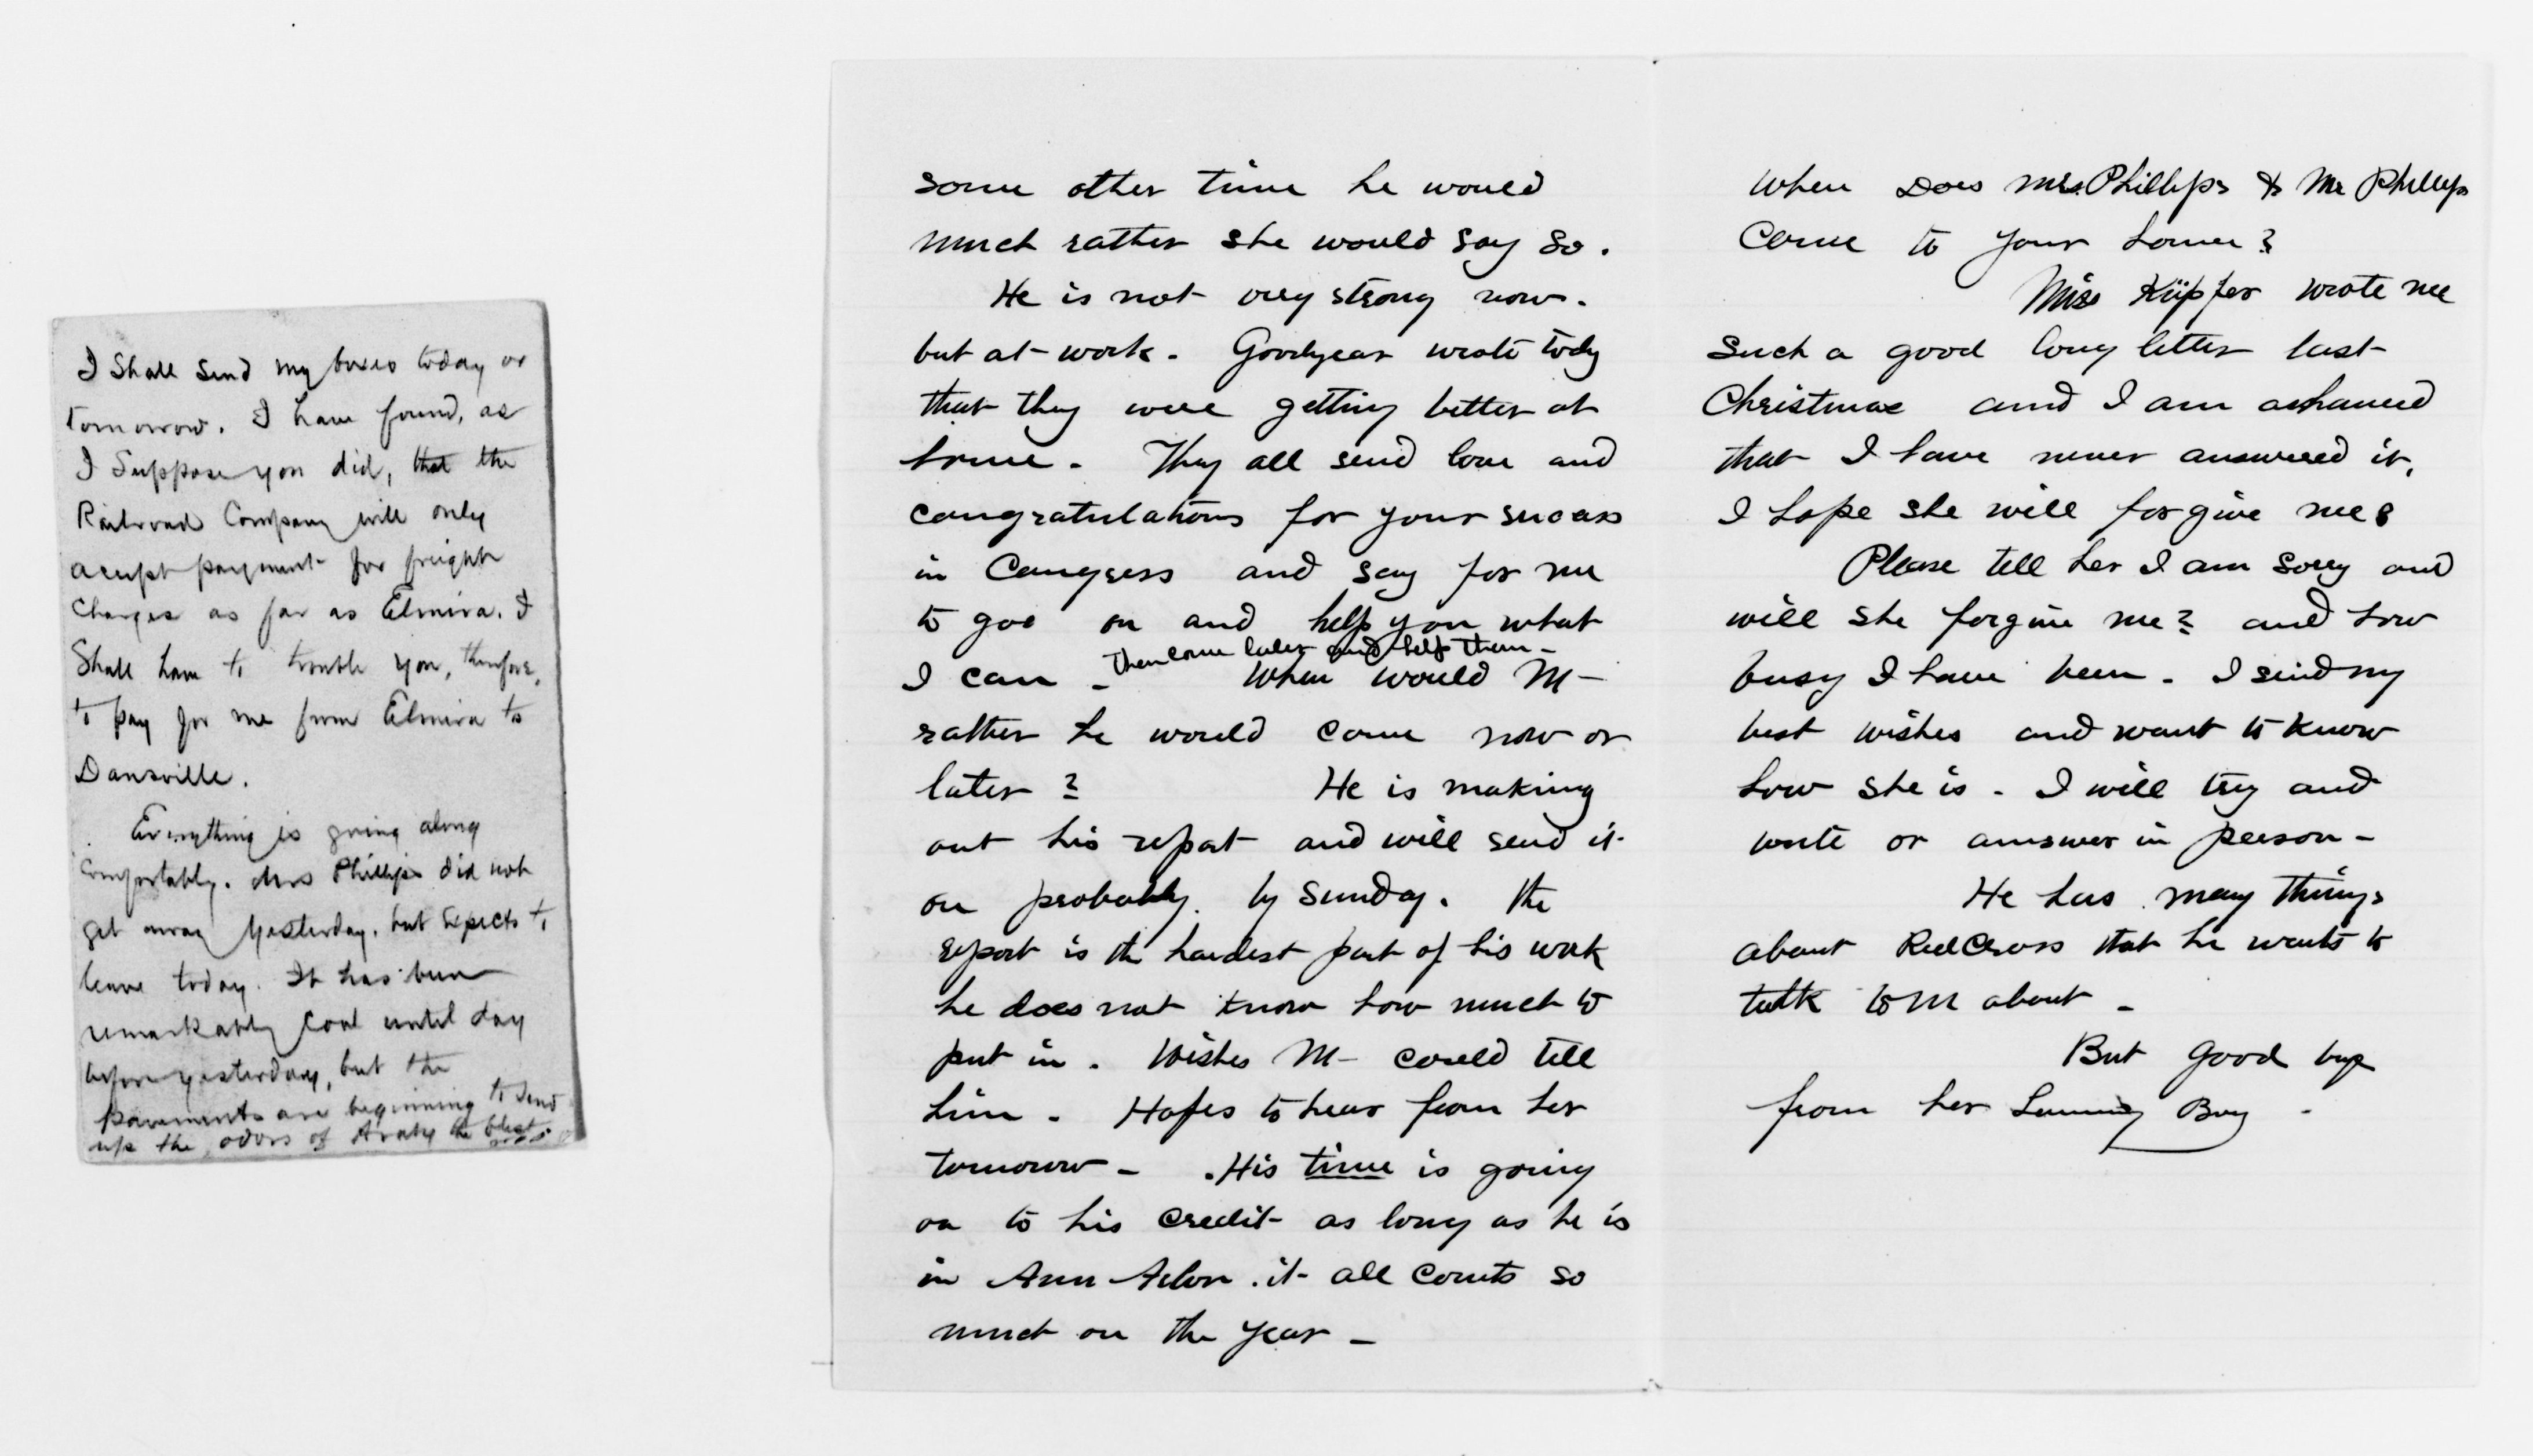 I Shall Send my boxes today or
tomorrow. I have found, as
I Suppose you did, that the
Railroad Company will only
accept payment for freight
Charges as far as Elmira. I
Shall have to trouble you, therefore,
to pay for me from Elmira to
Dansville.
Everything is going along
Comfortably. Mrs Phillips did not
get away yesterday, but expects to
leave today. It has been
remarkably Cool until day
before yesterday, but the
pavements are beginning to send
up the odors of Araby the blest
some other time he would
much rather she would say so.
He is not very strong now.
but at work. Goodyear wrote tody
that they were getting better at
home. They all send love and
congratulations for your sucess
in Congress and say for me
to goe on and help you what
I can - then come later and help them -
When would M -
rather he would come now or
later? He is making
out his repat and will send it
on probably by Sunday. the
report is the hardest part of his work
he does not know how much to
put in. Wishes M - could tell
him. Hopes to hear from her
tomorow - . His time is going
on to his credit as long as he is
in Ann Arbor . it all counts so
much on the year -
When Does Mrs. Phillips & Mr Phillips
Come to your home?
Miss Küpfer wrote me
Such a good long letter last
Christmas and I am ashamed
that I have never answered it,
I hope she will forgive me
Please tell her I am sorry and
will she forgive me? and how
busy I have been. I send my
best wishes and want to know
how she is - I will try and
write or answer in person -
He has many things
about Red Cross that he wants to
talk to M about -
But Good bye
from her Boy -